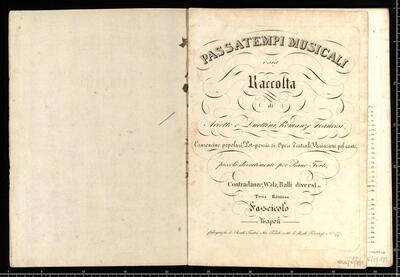 PASSATEMPI MUSICALI
ossia
Raccolta
di
Ariette e Duettini, Romanze Francesi,
Canzoncine popolari, Pot-pourris di Opere Teatrali, Variazioni pel canto,
piccoli divertimenti per Piano-Forte,
Contradanze, Walz, Balli diversi
Fascicolo
Napoli